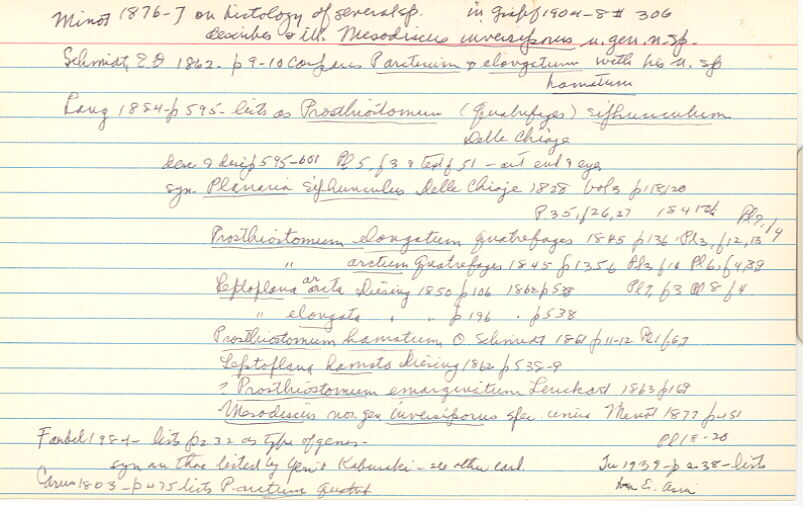 Minot 1876-7 on histology of several sp. in Graff 1904-8 # 306
describes & ill. Mesodiscus inversiporus n. gen. n. sp.
Schmidt, E.O 1862. p 9-10 compares P arctum & elongatum with his n. sp
hamatum
Lang 1884-p 595- lists as Prosthiostomum (Quatrefages) siphunculum
Delle Chiaje
desc & disc p 595-601 Pl 5, f 3 & text f 51 - ant end & eyes
syn. Planaria Siphunculus Delle Chiaje 1828 vol 3 p 118, 120
P 35, f 26, 27 1841 Pl ?, f 4
Prosthiostomum elongatum Quatrefages 1845 p 136 Pl 3, f 12, 13
" arctum Quatrefages 1845 p 135 Pl 3 f Pl 6, f
Leptoplana arcta Diesing 1850 p 196 1862 p 538 Pl 7, f 3 Pl 8 f 4
" elongata " " p 196 . p 538
Prosthiostomum hamatum O Schmidt 1861 p 11-12 Pl 1 f 6, 7
Leptoplana hamata Diesing 1862 p 538-9
? Prosthiostomum emarginatum Leuckart 1863 p 169
Mesodiscus nov. gen inversiporus spec. Minot 1877 p 451
Pl 18-20
Faubel 1984- lists p 232 as type of genus-
syn are those listed by Yeri & Kaburaki - see other card. Tu 1939-p 238-lists
Carus p 475 lists P. arctum Quatref